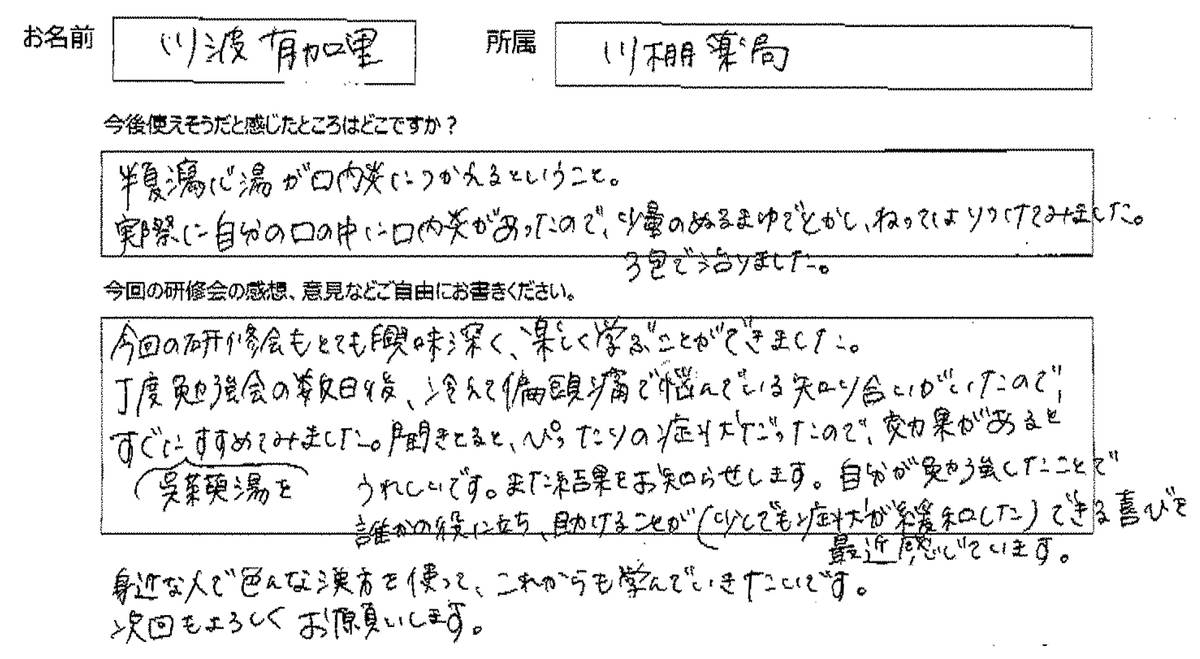 お名前 川波有加里 所属 川棚薬局
今後使えそうだと感じたところはどこですか？
半夏瀉心湯が口内炎につかえるということ。
実際に自分の口の中に口内炎があったので、少量のぬるまゆでとかし、ねってはりつけてみました。
3包で治りました。
今回の研修会の感想、意見などご自由にお書きください。
今回の研修会もとても興味深く、楽しく学ぶことができました。
丁度勉強会の数日後、冷えて偏頭痛で悩んでいる知り合いがいたので、
すぐにすすめてみました。聞きとると、ぴったりの症状だったので、効果があると
呉茱萸湯を うれしいです。また結果をお知らせします。自分が勉強したことで
誰かの役に立ち、助けることが（少しでも症状が緩和した）できる喜びを
最近感じています。
身近な人で色んな漢方を使って、これからも学んでいきたいです。
次回もよろしくお願いします。